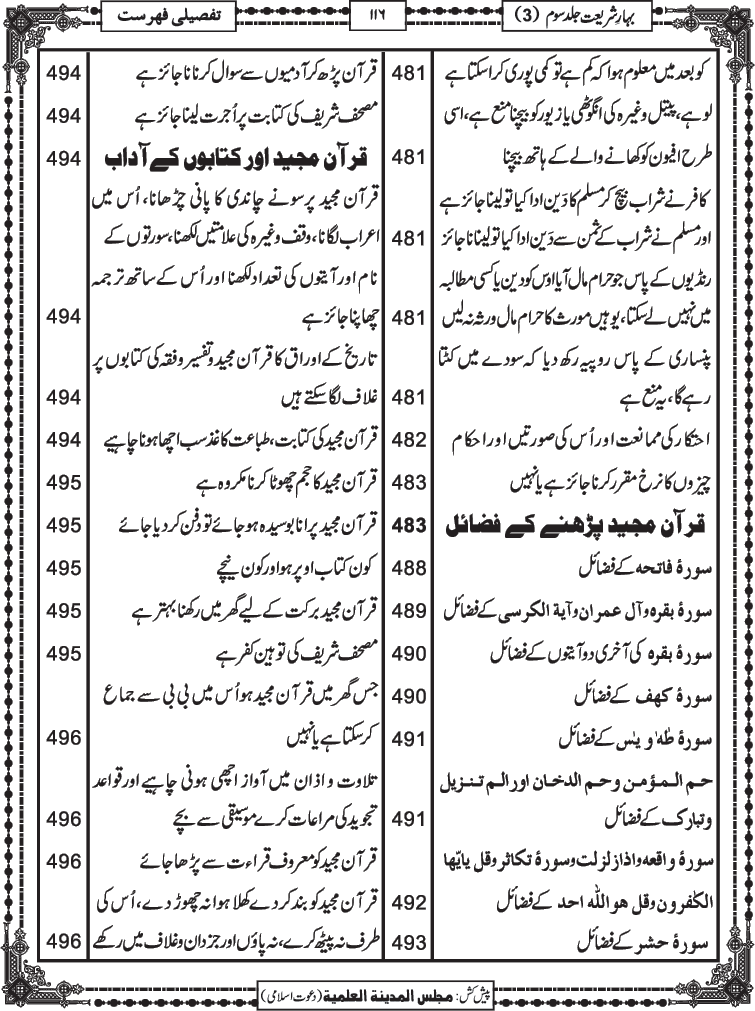 بہارِ شریعت جلد سوم (3)
۱۱۶
تفصیلی فہرست
کو بعد میں معلوم ہوا کہ کم ہے تو کمی پوری کرا سکتا ہے 481
لوہے، پیتل وغیرہ کی انگوٹھی یا زیور کو بیچنا منع ہے، اسی
طرح افیون کو کھانے والے کے ہاتھ بیچنا 481
کافر نے شراب بیچ کر مسلم کا دَین ادا کیا تو لینا جائز ہے
اور مسلم نے شراب کے ثمن سے دَین ادا کیا تو لینا ناجائز 481
رنڈیوں کے پاس جو حرام مال آیا اوس کو دین یا کسی مطالبہ
میں نہیں لے سکتا، یوہیں مورث کا حرام مال ورثہ نہ لیں 481
پنساری کے پاس روپیہ رکھ دیا کہ سودے میں کٹتا
رہے گا، یہ منع ہے 481
احتکار کی ممانعت اور اُس کی صورتیں اور احکام 482
چیزوں کا نرخ مقرر کرنا جائز ہے یا نہیں 483
قرآن مجید پڑھنے کے فضائل 483
سورۂ فاتحہ کے فضائل 488
سورۂ بقرہ وآل عمران وآیة الکرسی کے فضائل 489
سورۂ بقرہ کی آخری دو آیتوں کے فضائل 490
سورۂ کھف کے فضائل 490
سورۂ طٰهٰ و یٰس کے فضائل 491
حم المؤمن وحم الدخان اور الم تنزیل
وتبارک کے فضائل 491
سورۂ واقعہ واذا زلزلت وسورۂ تکاثر وقل یایّھا
الکٰفرون وقل ھو اللّٰہ احد کے فضائل 492
سورۂ حشر کے فضائل 493
قرآن پڑھ کر آدمیوں سے سوال کرنا ناجائز ہے 494
مصحف شریف کی کتابت پر اُجرت لینا جائز ہے 494
قرآن مجید اور کتابوں کے آداب 494
قرآن مجید پر سونے چاندی کا پانی چڑھانا، اُس میں
اعراب لگانا، وقف وغیرہ کی علامتیں لکھنا، سورتوں کے
نام اور آیتوں کی تعداد لکھنا اور اُس کے ساتھ ترجمہ
چھاپنا جائز ہے 494
تاریخ کے اوراق کا قرآن مجید و تفسیر و فقہ کی کتابوں پر
غلاف لگا سکتے ہیں 494
قرآن مجید کی کتابت، طباعت کاغذ سب اچھا ہونا چاہیے 494
قرآن مجید کا حجم چھوٹا کرنا مکروہ ہے 495
قرآن مجید پرانا بوسیدہ ہو جائے تو دفن کر دیا جائے 495
کون کتاب اوپر ہو اور کون نیچے 495
قرآن مجید برکت کے لیے گھر میں رکھنا بہتر ہے 495
مصحف شریف کی توہین کفر ہے 495
جس گھر میں قرآن مجید ہو اُس میں بی بی سے جماع
کر سکتا ہے یا نہیں 496
تلاوت و اذان میں آواز اچھی ہونی چاہیے اور قواعد
تجوید کی مراعات کرے موسیقی سے بچے 496
قرآن مجید کو معروف قراءت سے پڑھا جائے 496
قرآن مجید کو بند کر دے کھلا ہوا نہ چھوڑ دے، اُس کی
طرف نہ پیٹھ کرے، نہ پاؤں اور جزدان و غلاف میں رکھے 496
پیش کش: مجلس المدینة العلمیة (دعوت اسلامی)